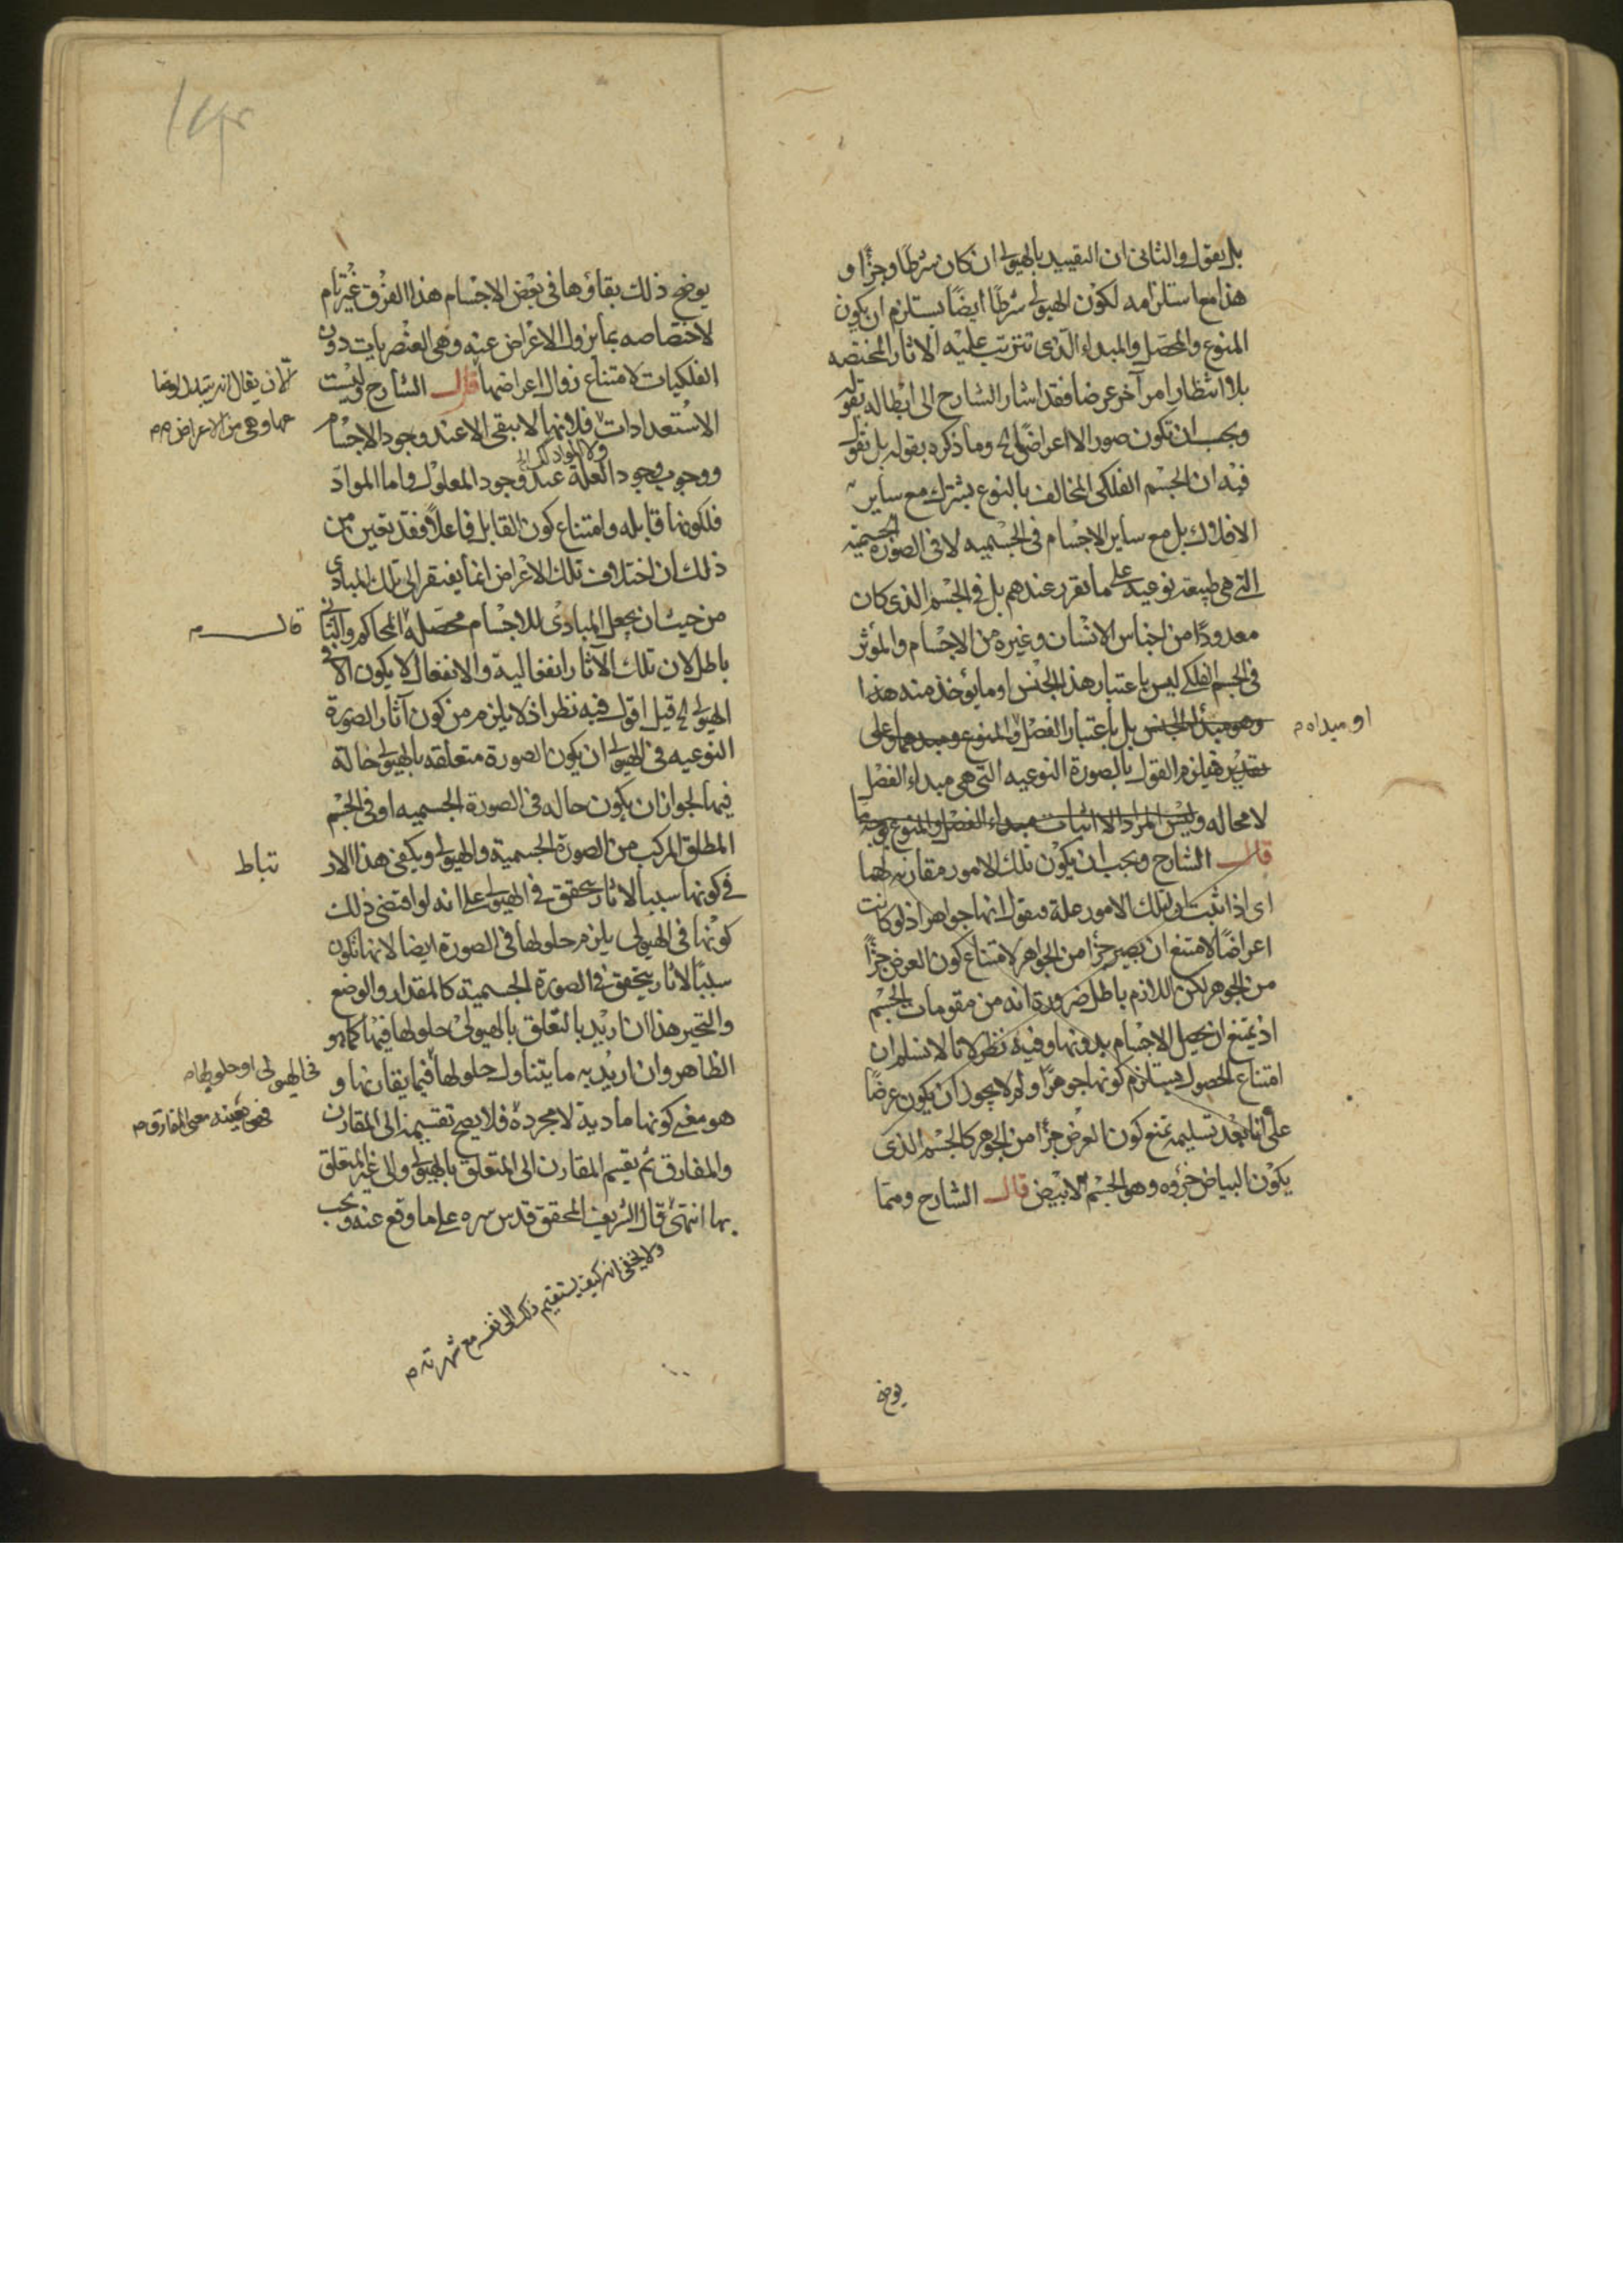 بل يقول والثانى ان التقييد بالهيولى ان كان شرطا وجزأ و
هذا مع استلزامه لكون الهيولى شرطا ايضا يستلزم ان يكون
المنوع والمحصل والمبداء الذى تترتب عليه الاثار المختصه
بلا انتظار امر آخر عرضا فقد اشار الشارح الى ابطاله بقوله
ويجب ان تكون صورا لا اعراضا الخ وما ذكره بقوله بل نقول
فيه ان الجسم الفلكى المخالف بالنوع يشترك مع ساير
الافلاك بل مع ساير الاجسام فى الجسميه لا فى الصورة الجسمية
التى هى طبيعة نوعية على ما تقرر عندهم بل فى الجسم الذى كان
معدودا من اجناس الانسان وغيره من الاجسام والمؤثر
فى الجسم الفلكى ليس باعتبار هذا الجنس او ما يؤخذ منه هذا
وهو مبدأ الجنس بل باعتبار الفصل والمنوع ومبدءهما وعلى
او مبداه م
تقدير فيلزم القول بالصورة النوعيه التى هى مبداء الفصل
لا محاله وليس المراد الا اثبات مبداء الفصل والمنوع
قال الشارح ويجب ان يكون تلك الامور مقارنه لهما
اى اذا ثبت ان تلك الامور علة فنقول انها جواهر اذ لو كانت
اعراضا لامتنع ان يصير جزأ من الجواهر لامتناع كون العرض جزأ
من الجوهر لكن اللازم باطل ضرورة انه من مقومات الجسم
اذ يمتنع ان يحصل الاجسام بدونها وفيه نظر لانا لا نسلم ان
امتناع الحصول يستلزم كونها جوهرا ولم لا يجوز ان يكون عرضا
على انا بعد تسليمه نمنع كون العرض جزأ من الجوهر كالجسم الذى
يكون البياض جزؤه وهو الجسم الابيض قال الشارح ومما
يوضح
يوضح ذلك بقاؤها فى بعض الاجسام هذا الفرق غير تام
لاختصاصه بما يزول الاعراض عنه وهى العنصريات دون
الفلكيات لامتناع زوال اعراضها قال الشارح وليست
لان يقال انه يتبدل
عنها وهى من الاعراض م
الاستعدادات فلانها لا تبقى الا عند وجود الاجسام
ووجوب وجود العلة عند وجود المعلول واما المواد
ولا المواد
فلكونها قابله وامتناع كون القابل فاعلا فقد تعين من
ذلك ان اختلاف تلك الاعراض انما يفتقر الى تلك المبادى
من حيث ان يجعل المبادى للاجسام محصله المحاكم والثانى
قال م
باطل لان تلك الآثار انفعالية والانفعال لا يكون الا فى
الهيولى الخ قيل اقول فيه نظر اذ لا يلزم من كون آثار الصورة
النوعيه فى الهيولى ان يكون الصورة متعلقه بالهيولى حالة
فيها لجواز ان يكون حاله فى الصورة الجسميه او فى الجسم
المطلق المركب من الصورة الجسمية والهيولى ويكفى هذا الار
تباط
فى كونها سببا لاثار يتحقق فى الهيولى على انه لو اقتضى ذلك
كونها فى الهيولى يلزم حلولها فى الصورة ايضا لانها تكون
سببا لاثار يتحقق فى الصورة الجسمية كالمقدار والوضع
والتحيز هذا ان اريد بالتعلق بالهيولى حلولها فيها كما هو
الظاهر وان اريد به ما يتناول حلولها فيما يقارنها و
فى الهيولى او حلولها م
هو معنى كونها مادية لا مجردة فلا يصح تقسيمه الى المقارن
فهو بعينه معنى المفارق م
والمفارق ثم يقسم المقارن الى المتعلق بالهيولى والى غير المتعلق
بها انتهى قال الشريف المحقق قدس سره على ما وقع عنه ويجب
ولا يخفى انه كيف يستقيم ذلك الى نفسه مع شهرته م